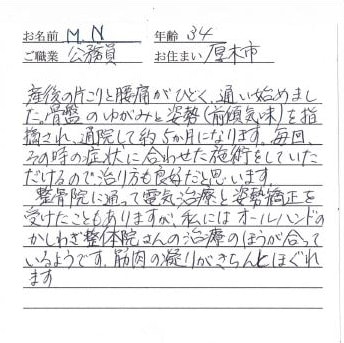 お名前 M.N 年齢 34
ご職業 公務員 お住まい 厚木市
産後の肩こりと腰痛がひどく、通い始めまし
た。骨盤のゆがみと姿勢(前傾気味)を指
摘され、通院して約5か月になります。毎回、
その時の症状に合わせた施術をしていた
だけるので治り方も良好だと思います。
整骨院に通って電気治療と姿勢矯正を
受けたこともありますが、私にはオールハンドの
かしわぎ整体院さんの治療のほうが合って
いるようです。筋肉の凝りがきちんとほぐれ
ます